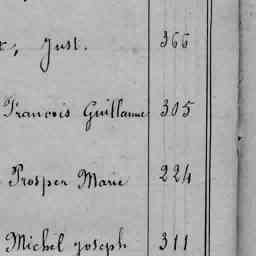 Just. 366
François Guillaume 305
Prosper Marie 224
Michel Joseph 311